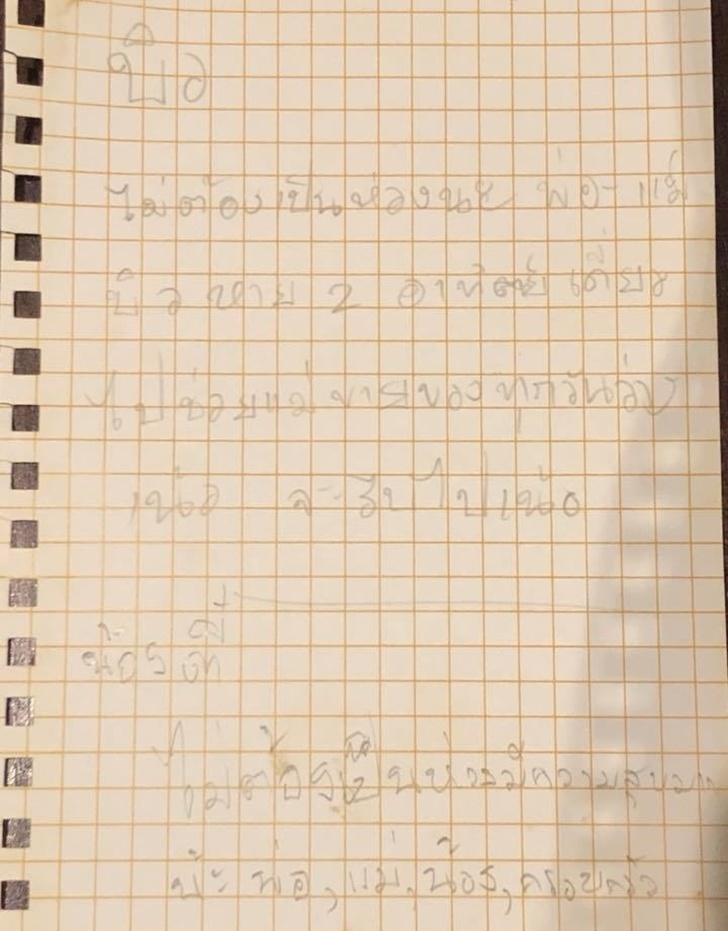 บิว
ไม่ต้องเป็นห่วงนะ พ่อ-แม่
บิวหาย 2 อาทิตย์ เดี๋ยว
ไปช่วยแม่ขายของทุกวัน
จะรีบไปเน้อ
น้อง
ไม่ต้องเป็นห่วงมีความสุข
พ่อ, แม่, น้อง, ครอบครัว